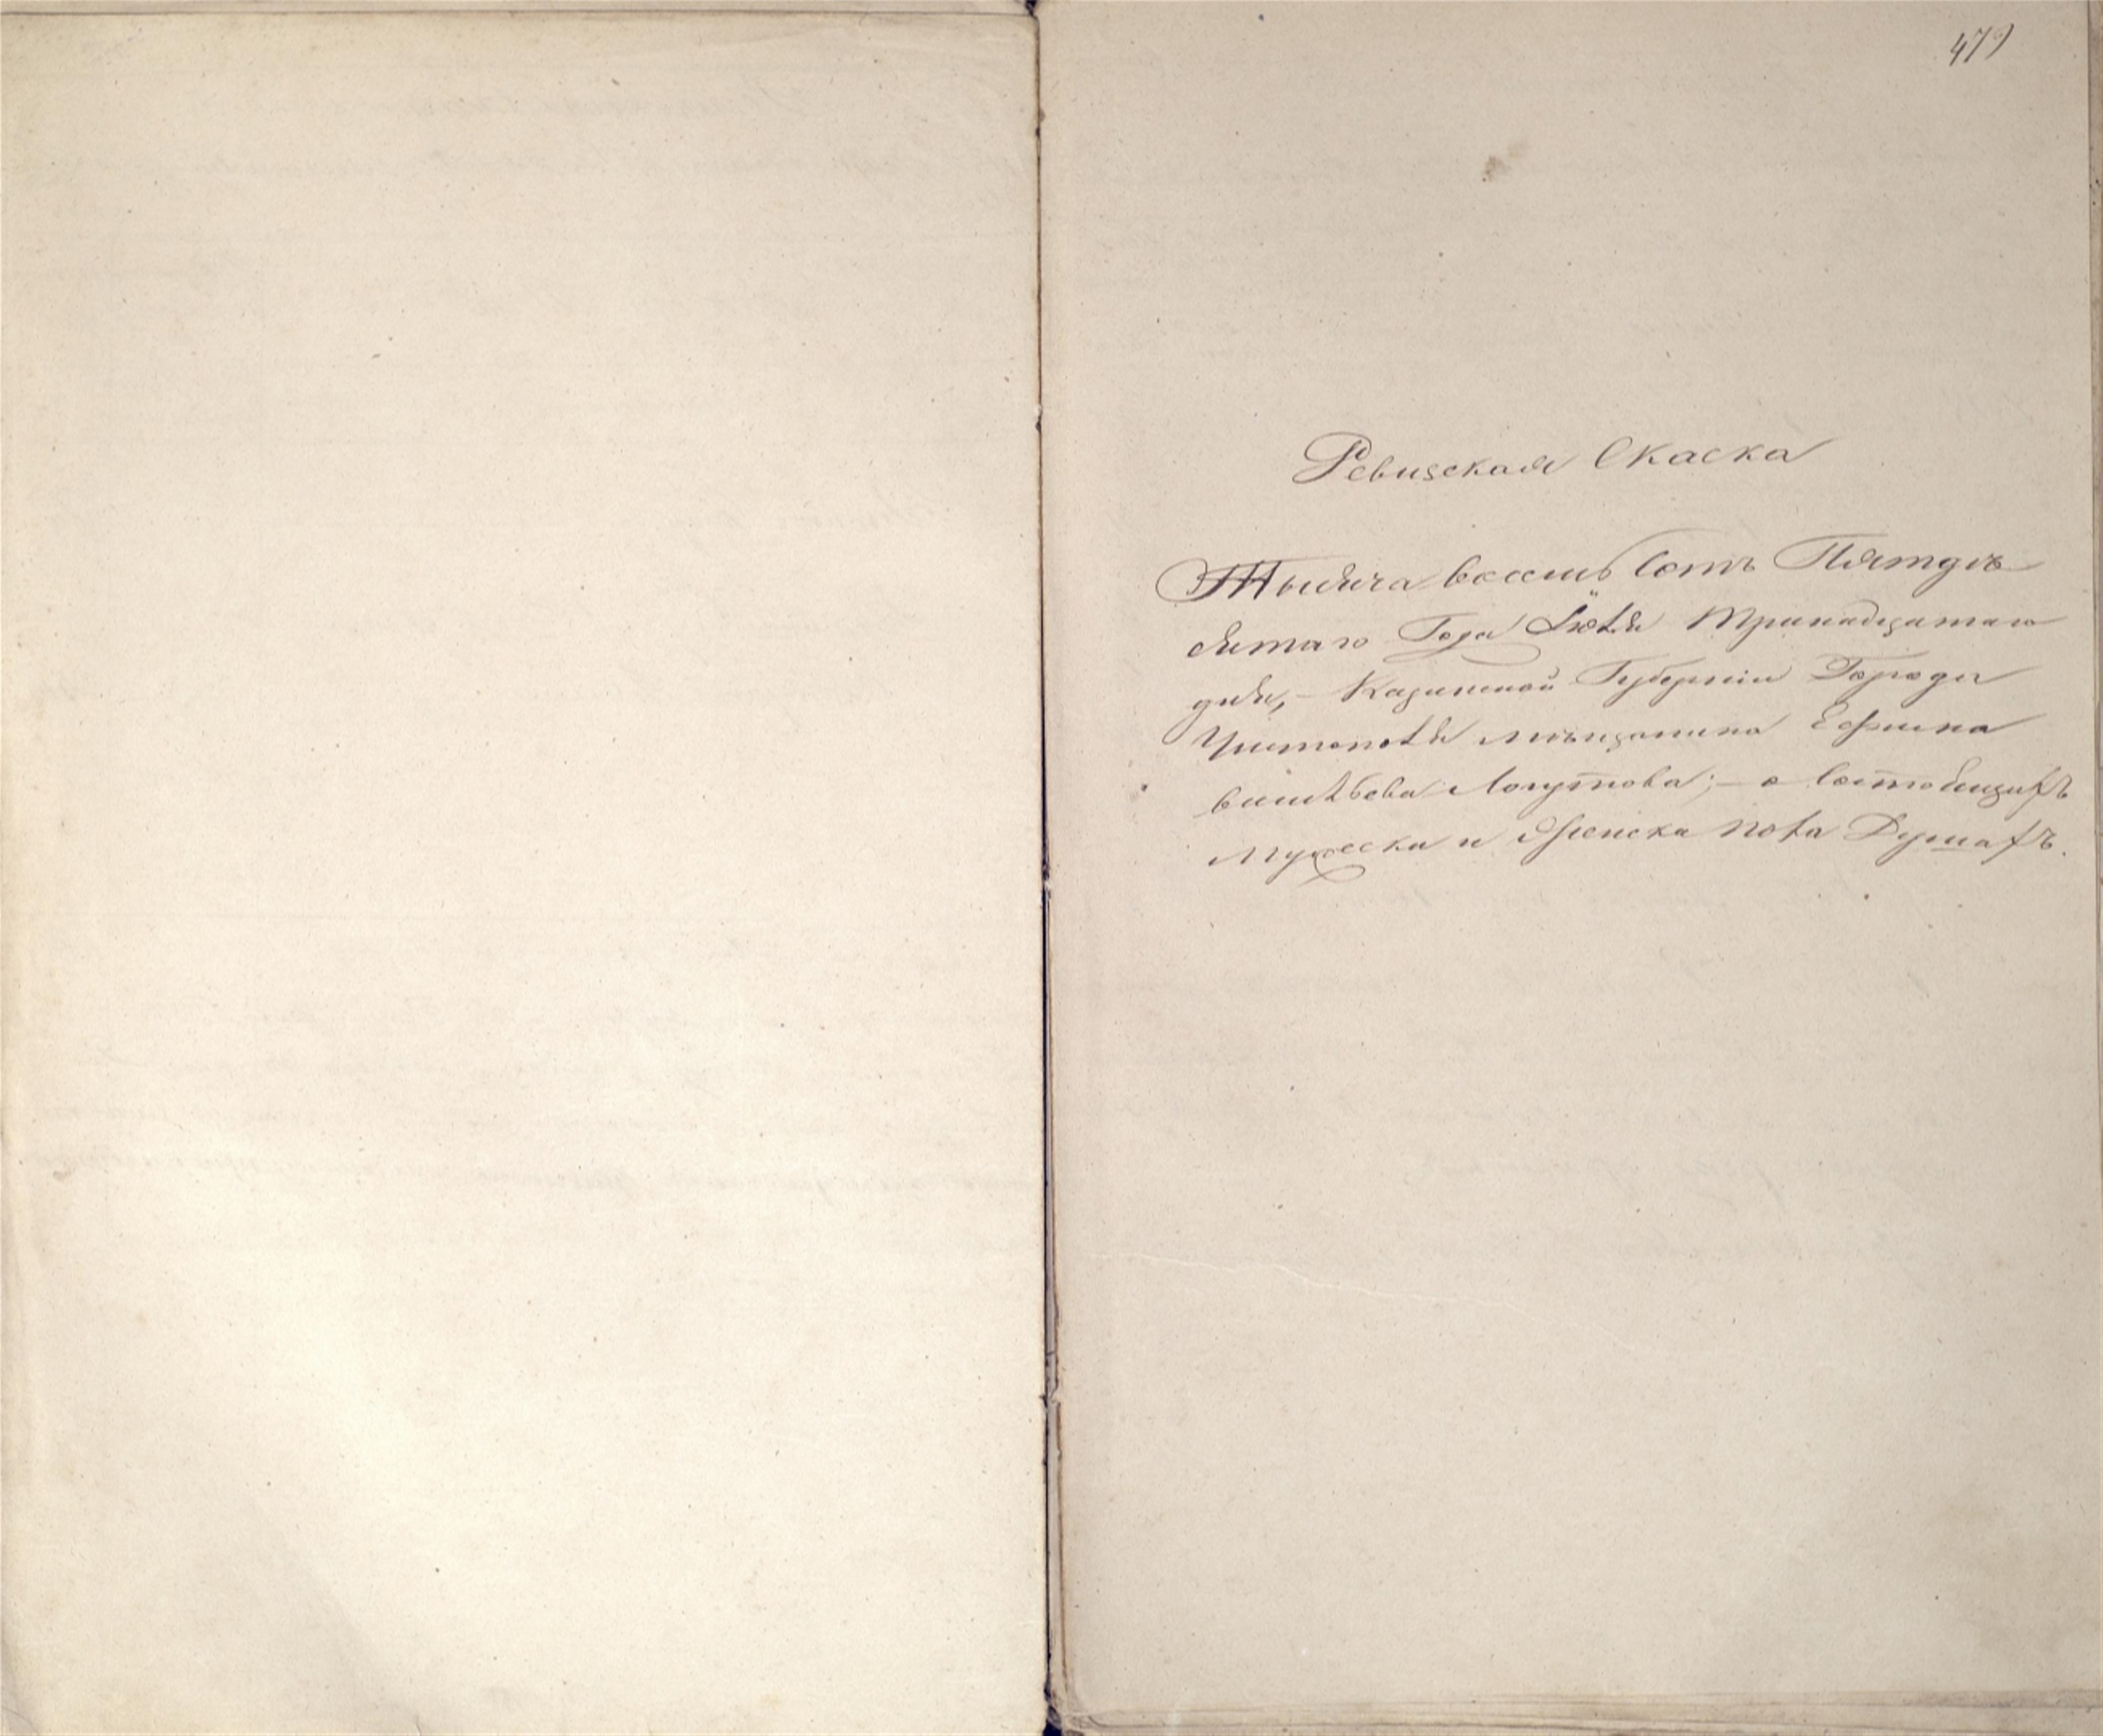 479
Ревизская Скаска
Тысяча восемь сотъ Пятдѣ
сятаго Года Іюля Тринадцатаго
дня, – Казанской Губерніи Города
Чистополя мѣщанина Ефима
васильева Логутова; – о состоящихъ
Мужеска и Женска пола Душахъ.